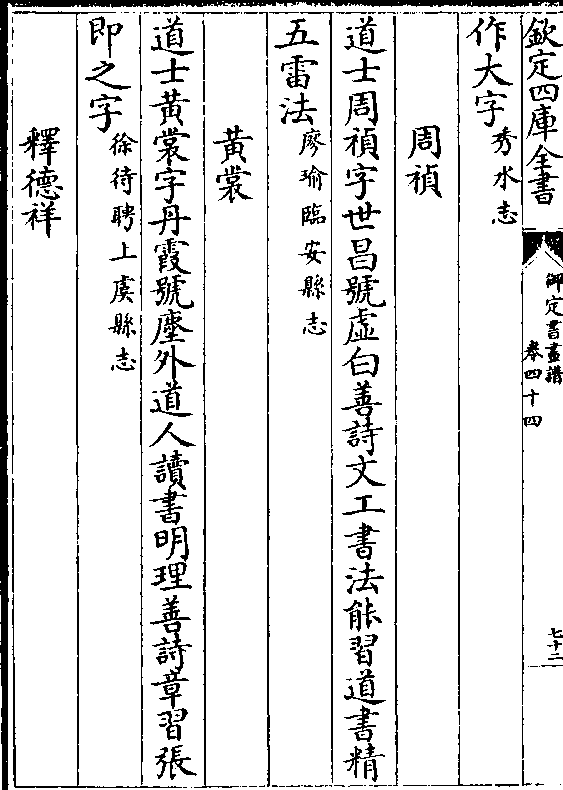 欽定四庫全書
御定書畫譜
卷四十四
七十二
作大字秀水志
周禎
道士周禎字世昌號虛白善詩文工書法能習道書精
五雷法廖瑜臨安縣志
黃裳
道士黃裳字丹霞號塵外道人讀書明理善詩章習張
即之字徐待聘上虞縣志
釋德祥